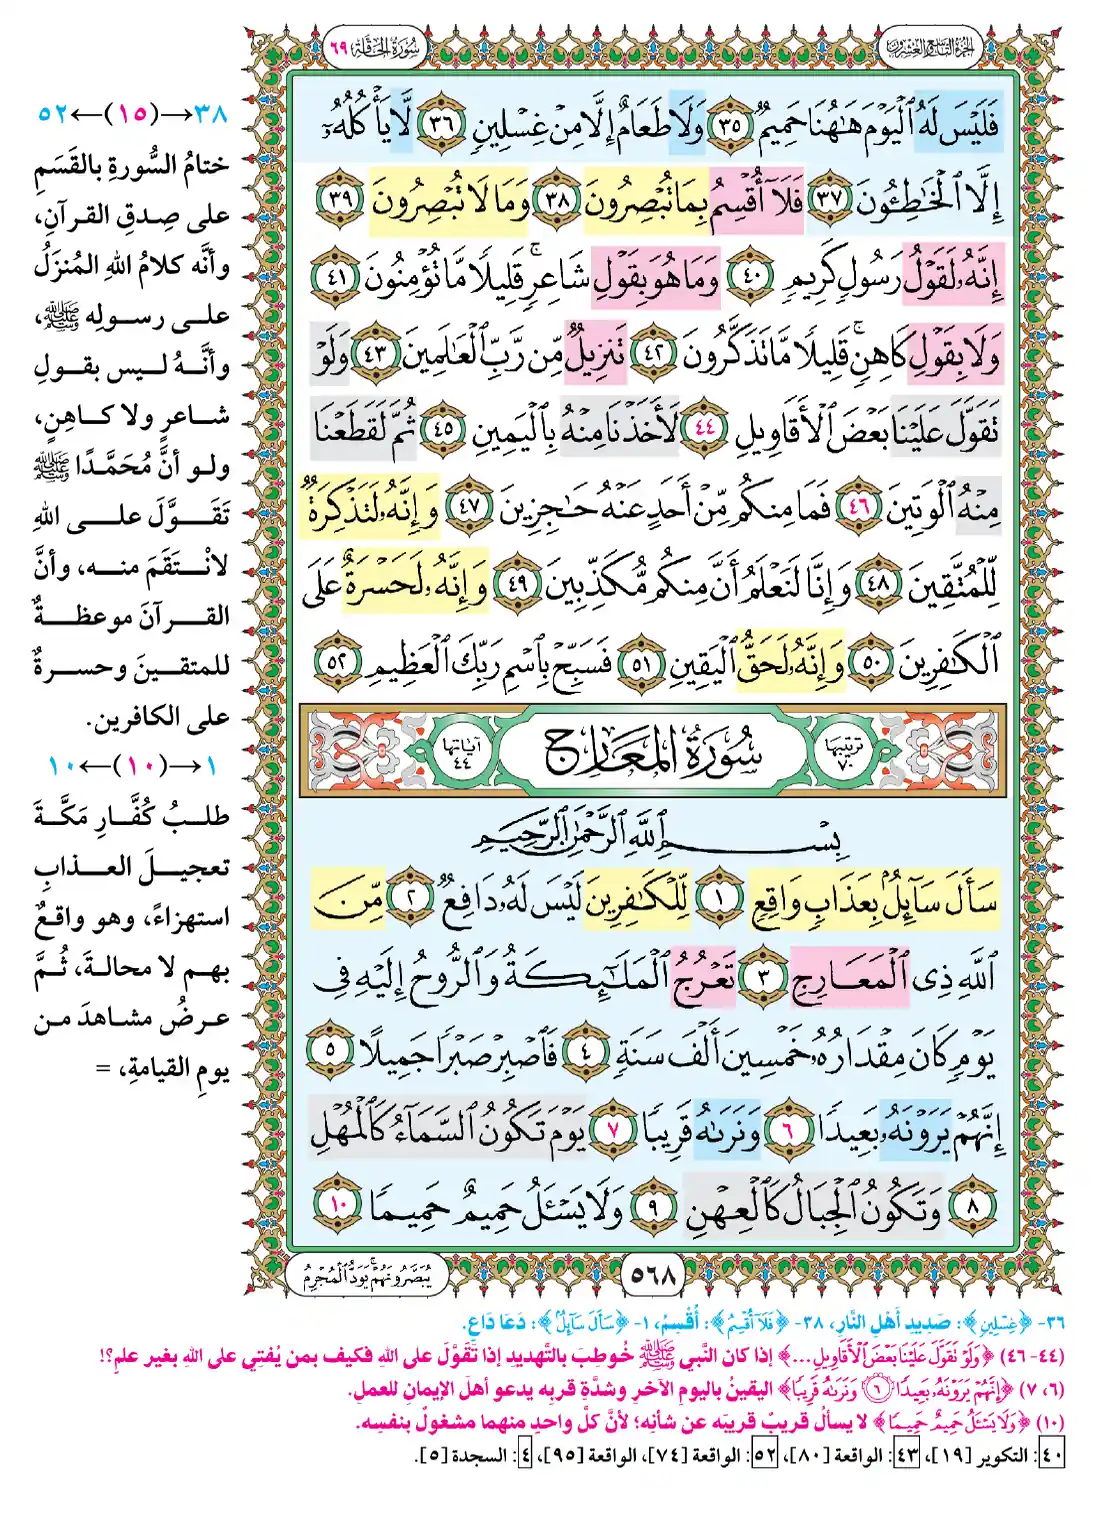 الجزء التاسع والعشرون
سورة الحاقة ٦٩
فَلَيْسَ لَهُ ٱلْيَوْمَ هَٰهُنَا حَمِيمٌ ٣٥ وَلَا طَعَامٌ إِلَّا مِنْ غِسْلِينٍ ٣٦ لَّا يَأْكُلُهُۥٓ
إِلَّا ٱلْخَٰطِـُٔونَ ٣٧ فَلَآ أُقْسِمُ بِمَا تُبْصِرُونَ ٣٨ وَمَا لَا تُبْصِرُونَ ٣٩
إِنَّهُۥ لَقَوْلُ رَسُولٍ كَرِيمٍ ٤٠ وَمَا هُوَ بِقَوْلِ شَاعِرٍ ۚ قَلِيلًا مَّا تُؤْمِنُونَ ٤١
وَلَا بِقَوْلِ كَاهِنٍ ۚ قَلِيلًا مَّا تَذَكَّرُونَ ٤٢ تَنزِيلٌ مِّن رَّبِّ ٱلْعَٰلَمِينَ ٤٣ وَلَوْ
تَقَوَّلَ عَلَيْنَا بَعْضَ ٱلْأَقَاوِيلِ ٤٤ لَأَخَذْنَا مِنْهُ بِٱلْيَمِينِ ٤٥ ثُمَّ لَقَطَعْنَا
مِنْهُ ٱلْوَتِينَ ٤٦ فَمَا مِنكُم مِّنْ أَحَدٍ عَنْهُ حَٰجِزِينَ ٤٧ وَإِنَّهُۥ لَتَذْكِرَةٌ
لِّلْمُتَّقِينَ ٤٨ وَإِنَّا لَنَعْلَمُ أَنَّ مِنكُم مُّكَذِّبِينَ ٤٩ وَإِنَّهُۥ لَحَسْرَةٌ عَلَى
ٱلْكَٰفِرِينَ ٥٠ وَإِنَّهُۥ لَحَقُّ ٱلْيَقِينِ ٥١ فَسَبِّحْ بِٱسْمِ رَبِّكَ ٱلْعَظِيمِ ٥٢
ترتيبها ٧٠ سُورَةُ المَعَارِجِ آياتها ٤٤
بِسْمِ ٱللَّهِ ٱلرَّحْمَٰنِ ٱلرَّحِيمِ
سَأَلَ سَآئِلٌۢ بِعَذَابٍ وَاقِعٍ ١ لِّلْكَٰفِرِينَ لَيْسَ لَهُۥ دَافِعٌ ٢ مِّنَ
ٱللَّهِ ذِى ٱلْمَعَارِجِ ٣ تَعْرُجُ ٱلْمَلَٰٓئِكَةُ وَٱلرُّوحُ إِلَيْهِ فِى
يَوْمٍ كَانَ مِقْدَارُهُۥ خَمْسِينَ أَلْفَ سَنَةٍ ٤ فَٱصْبِرْ صَبْرًا جَمِيلًا ٥
إِنَّهُمْ يَرَوْنَهُۥ بَعِيدًا ٦ وَنَرَىٰهُ قَرِيبًا ٧ يَوْمَ تَكُونُ ٱلسَّمَآءُ كَٱلْمُهْلِ
٨ وَتَكُونُ ٱلْجِبَالُ كَٱلْعِهْنِ ٩ وَلَا يَسْـَٔلُ حَمِيمٌ حَمِيمًا ١٠
٥٦٨
يُبَصَّرُونَهُمْ ۚ يَوَدُّ ٱلْمُجْرِمُ
٣٨→(١٥)←٥٢
ختامُ السُّورةِ بالقَسَمِ
على صِدقِ القرآنِ،
وأنَّه كلامُ اللهِ المُنزَلُ
على رسولِه ﷺ،
وأنَّهُ ليس بقولِ
شاعرٍ ولا كاهنٍ،
ولو أنَّ مُحَمَّدًا ﷺ
تَقَوَّلَ على اللهِ
لانْتَقَمَ منه، وأنَّ
القرآنَ موعظةٌ
للمتقينَ وحسرةٌ
على الكافرين.
١→(١٠)←١٠
طلبُ كُفَّارِ مَكَّةَ
تعجيلَ العذابِ
استهزاءً، وهو واقعٌ
بهم لا محالةَ، ثُمَّ
عرضُ مشاهدَ من
يومِ القيامةِ، =
٣٦- ﴿غِسْلِينٍ﴾: صَدِيدِ أَهْلِ النَّارِ، ٣٨- ﴿فَلَآ أُقْسِمُ﴾: أُقْسِمُ، ١- ﴿سَأَلَ سَآئِلٌۢ﴾: دَعَا دَاعٍ.
(٤٤- ٤٦) ﴿وَلَوْ تَقَوَّلَ عَلَيْنَا بَعْضَ ٱلْأَقَاوِيلِ...﴾ إذا كان النَّبي ﷺ خُوطِبَ بالتَّهديدِ إذا تَقَوَّلَ على اللهِ فكيف بمن يُفتِي على اللهِ بغير علمٍ؟!
(٦، ٧) ﴿إِنَّهُمْ يَرَوْنَهُۥ بَعِيدًا ٦ وَنَرَىٰهُ قَرِيبًا﴾ اليقينُ باليومِ الآخرِ وشدَّةِ قربِه يدعو أهلَ الإيمانِ للعملِ.
(١٠) ﴿وَلَا يَسْـَٔلُ حَمِيمٌ حَمِيمًا﴾ لا يسألُ قريبٌ قريبَه عن شأنِه؛ لأنَّ كلَّ واحدٍ منهما مشغولٌ بنفسِه.
٤٠: التكوير [١٩]، ٤٣: الواقعة [٨٠]، ٥٢: الواقعة [٧٤]، الواقعة [٩٥]، ٤: السجدة [٥].